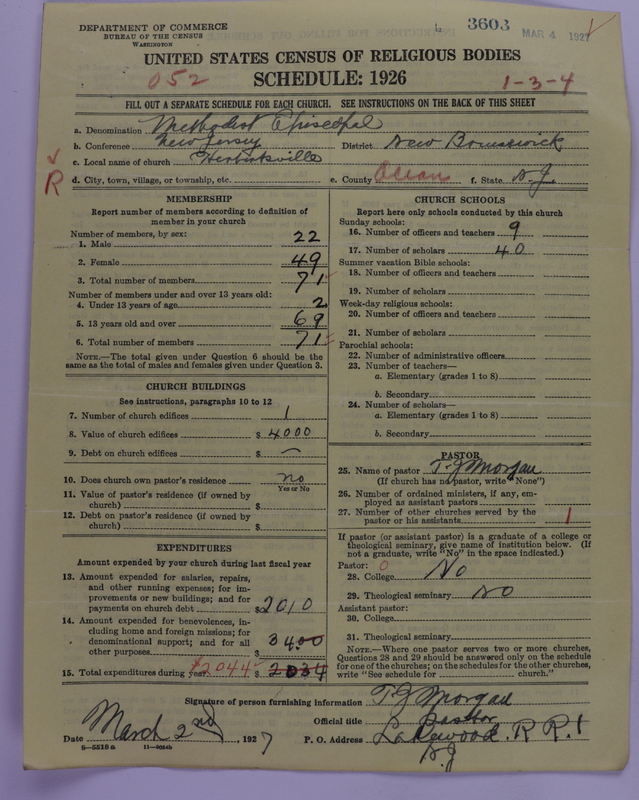 DEPARTMENT OF COMMERCE
BUREAU OF THE CENSUS
WASHINGTON
3603
MAR 4 1927
UNITED STATES CENSUS OF RELIGIOUS BODIES
052
SCHEDULE: 1926
1-3-4
FILL OUT A SEPARATE SCHEDULE FOR EACH CHURCH. SEE INSTRUCTIONS ON THE BACK OF THIS SHEET
a. Denomination Methodist Episcopal
b. Conference New Jersey District New Brunswick
c. Local name of church Herbertsville
R
d. City, town, village, or township, etc. e. County Ocean f. State N.J.
MEMBERSHIP
Report number of members according to definition of member in your church
Number of members, by sex:
1. Male 22
2. Female 49
3. Total number of members 71
Number of members under and over 13 years old:
4. Under 13 years of age 2
5. 13 years old and over 69
6. Total number of members 71
NOTE.—The total given under Question 6 should be the
same as the total of males and females given under Question 3.
CHURCH BUILDINGS
See instructions, paragraphs 10 to 12
7. Number of church edifices 1
8. Value of church edifices $ 4000
9. Debt on church edifices $ —
10. Does church own pastor's residence no
Yes or No
11. Value of pastor's residence (if owned by
church) $
12. Debt on pastor's residence (if owned by
church) $
EXPENDITURES
Amount expended by your church during last fiscal year
13. Amount expended for salaries, repairs,
and other running expenses; for im-
provements or new buildings; and for
payments on church debt $ 2010
14. Amount expended for benevolences, in-
cluding home and foreign missions; for
denominational support; and for all
other purposes $ 34.00
15. Total expenditures during year $2044 $ 2034
CHURCH SCHOOLS
Report here only schools conducted by this church
Sunday schools:
16. Number of officers and teachers 9
17. Number of scholars 40
Summer vacation Bible schools:
18. Number of officers and teachers
19. Number of scholars
Week-day religious schools:
20. Number of officers and teachers
21. Number of scholars
Parochial schools:
22. Number of administrative officers
23. Number of teachers—
a. Elementary (grades 1 to 8)
b. Secondary
24. Number of scholars—
a. Elementary (grades 1 to 8)
b. Secondary
PASTOR
25. Name of pastor T J Morgan
(If church has no pastor, write "None")
26. Number of ordained ministers, if any, em-
ployed as assistant pastors
27. Number of other churches served by the
pastor or his assistants 1
If pastor (or assistant pastor) is a graduate of a college or
theological seminary, give name of institution below. (If
not a graduate, write "No" in the space indicated.)
Pastor: 0
28. College No
29. Theological seminary No
Assistant pastor:
30. College
31. Theological seminary
NOTE.—Where one pastor serves two or more churches,
Questions 28 and 29 should be answered only on the schedule
for one of the churches; on the schedules for the other churches,
write "See schedule for church."
Signature of person furnishing information T J Morgan
Official title Pastor
Date March 2nd, 1927 P. O. Address Lakewood. R R. 1
N.J
8-5510 a 11-9024b